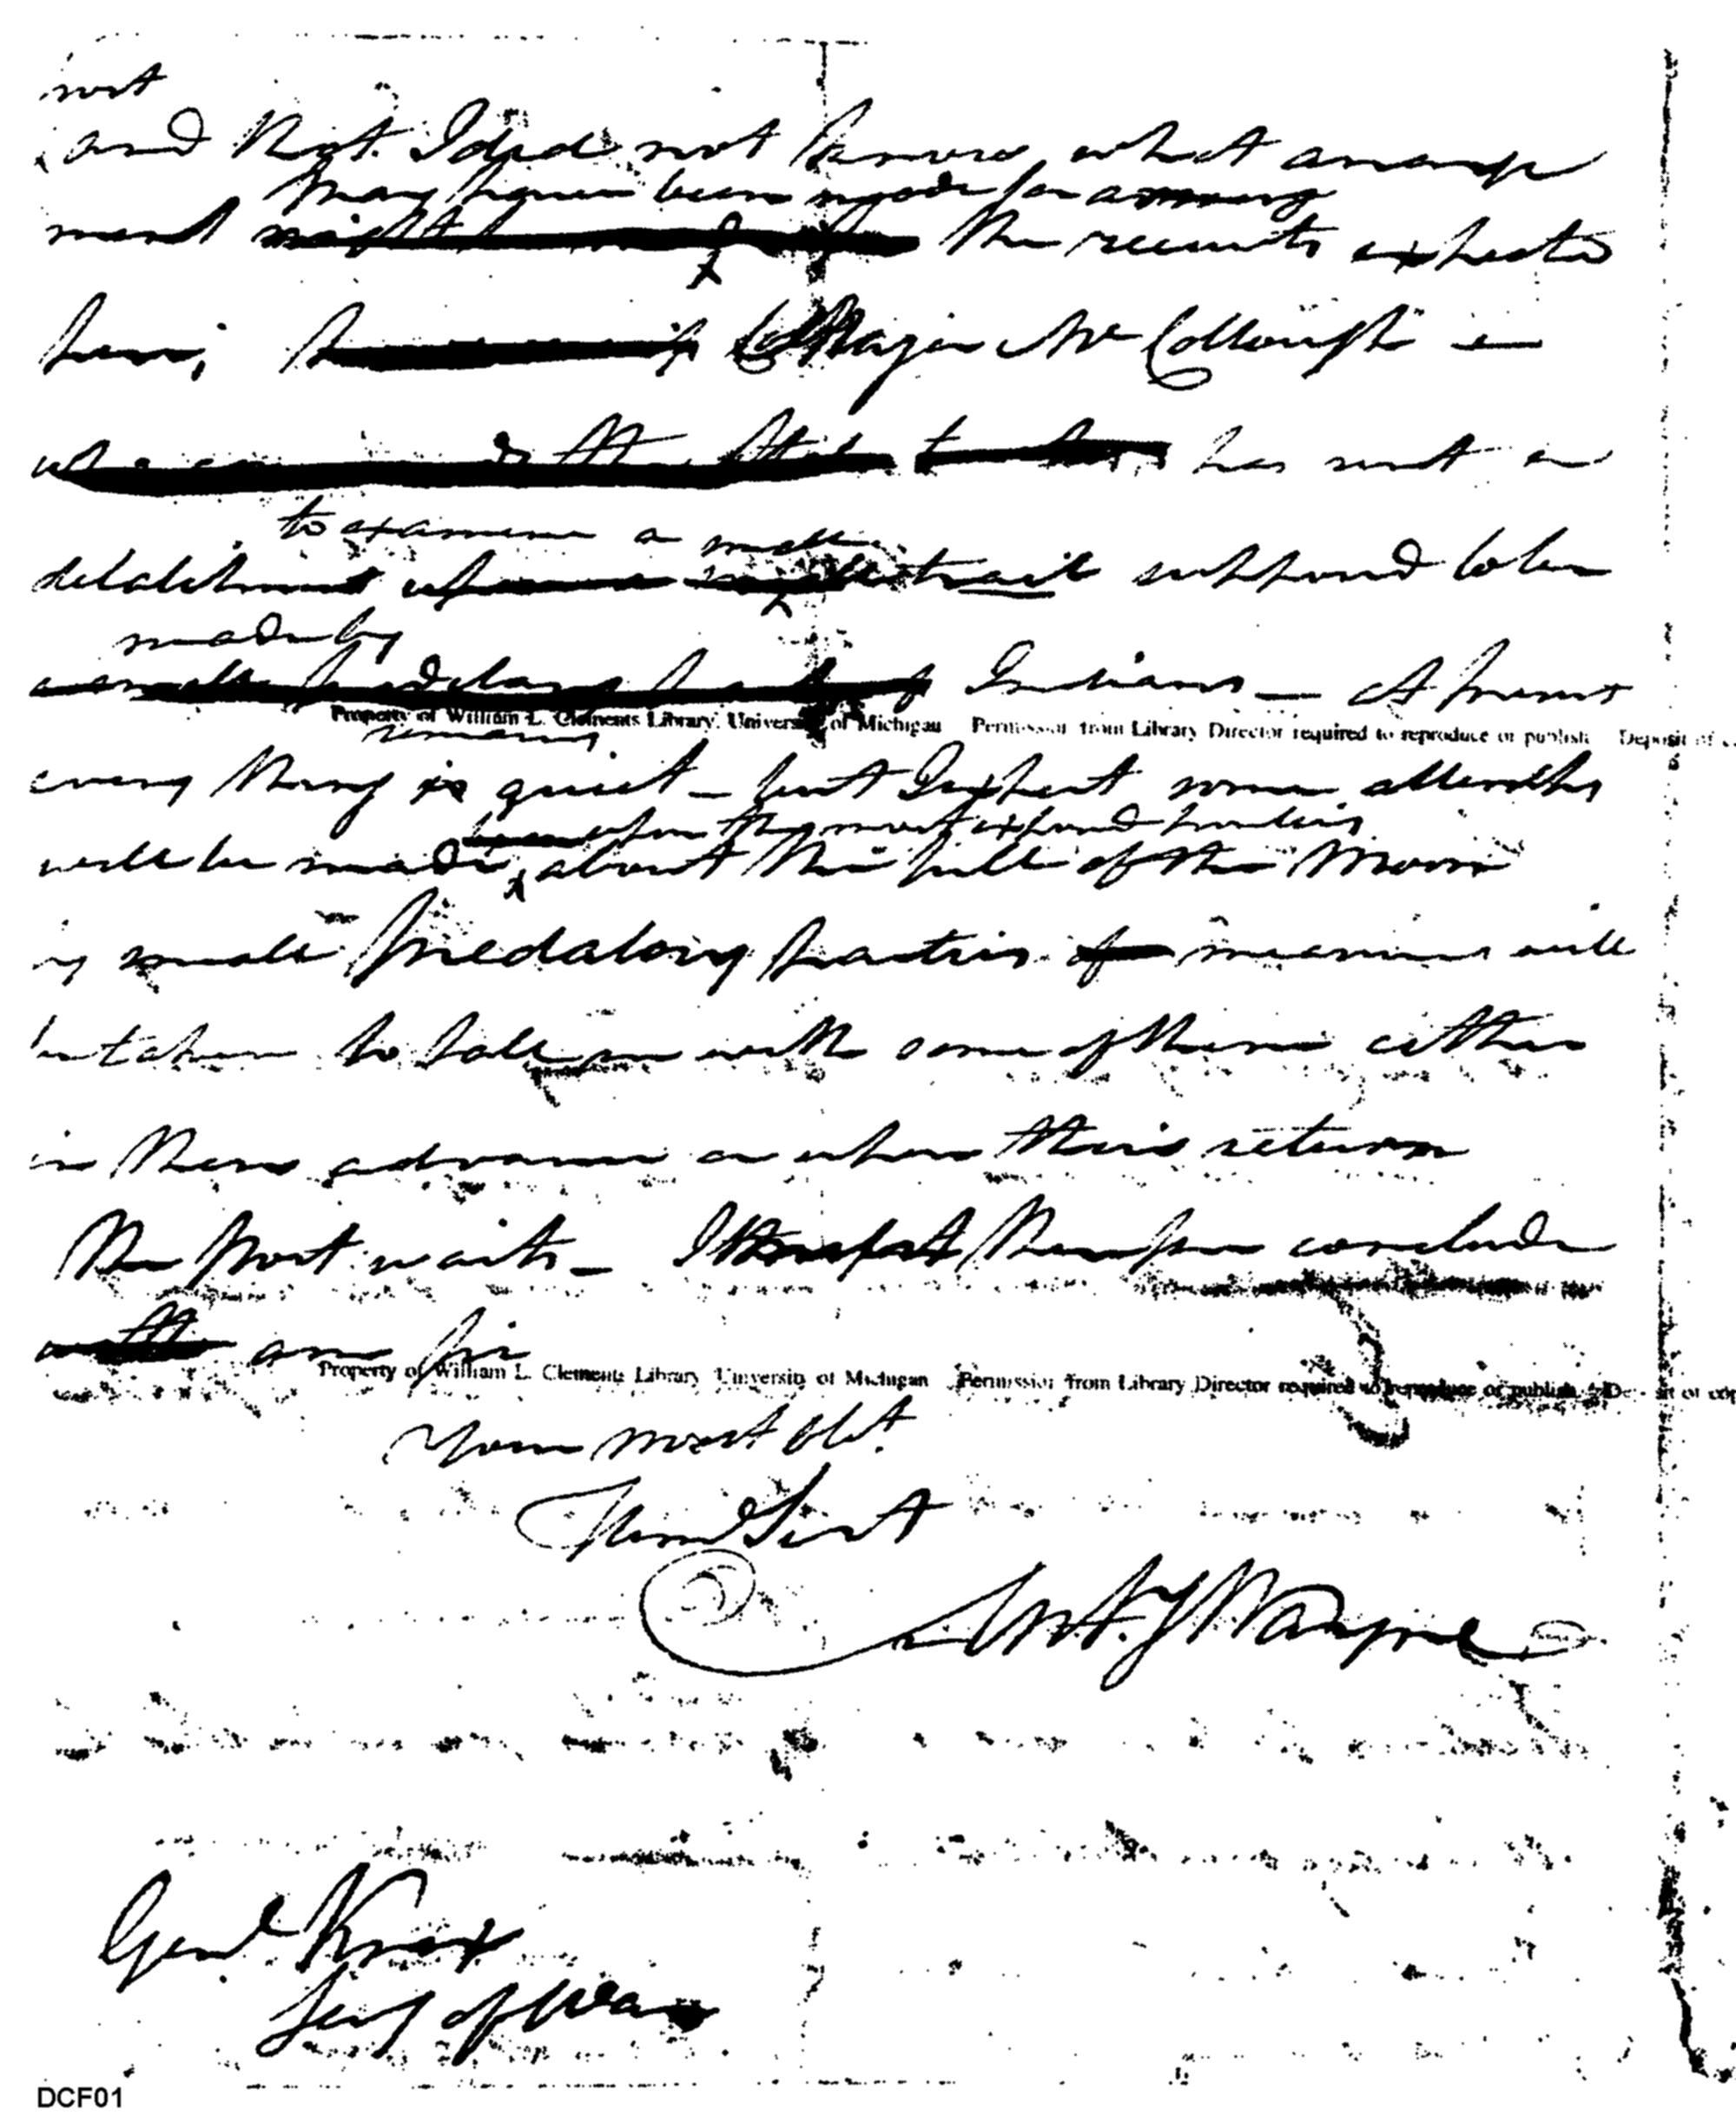 not
and that I did not know what arrange
may have been made for arming
ment might the recruits expected
here; Major McCollough
has sent a
to examine a
detachment trail supposed to be
made by
a small predatory party of Indians — At present
Property of William L. Clements Library, University of Michigan Permission from Library Director required to reproduce or publish Deposit of
remains
every thing is quiet — but I expect some attempts
upon the most exposed frontiers
will be made about the full of the Moon
by small predatory parties of measures will
be taken to fall in with some of them either
in there advance or when they return
The post waits — I must therefore conclude
with am Sir
Property of William L. Clements Library University of Michigan Permission from Library Director required to reproduce or publish Deposit of cop
Your most Obt
Huml Sert
Anty Wayne
Genl Knox
Secy of War
DCF01